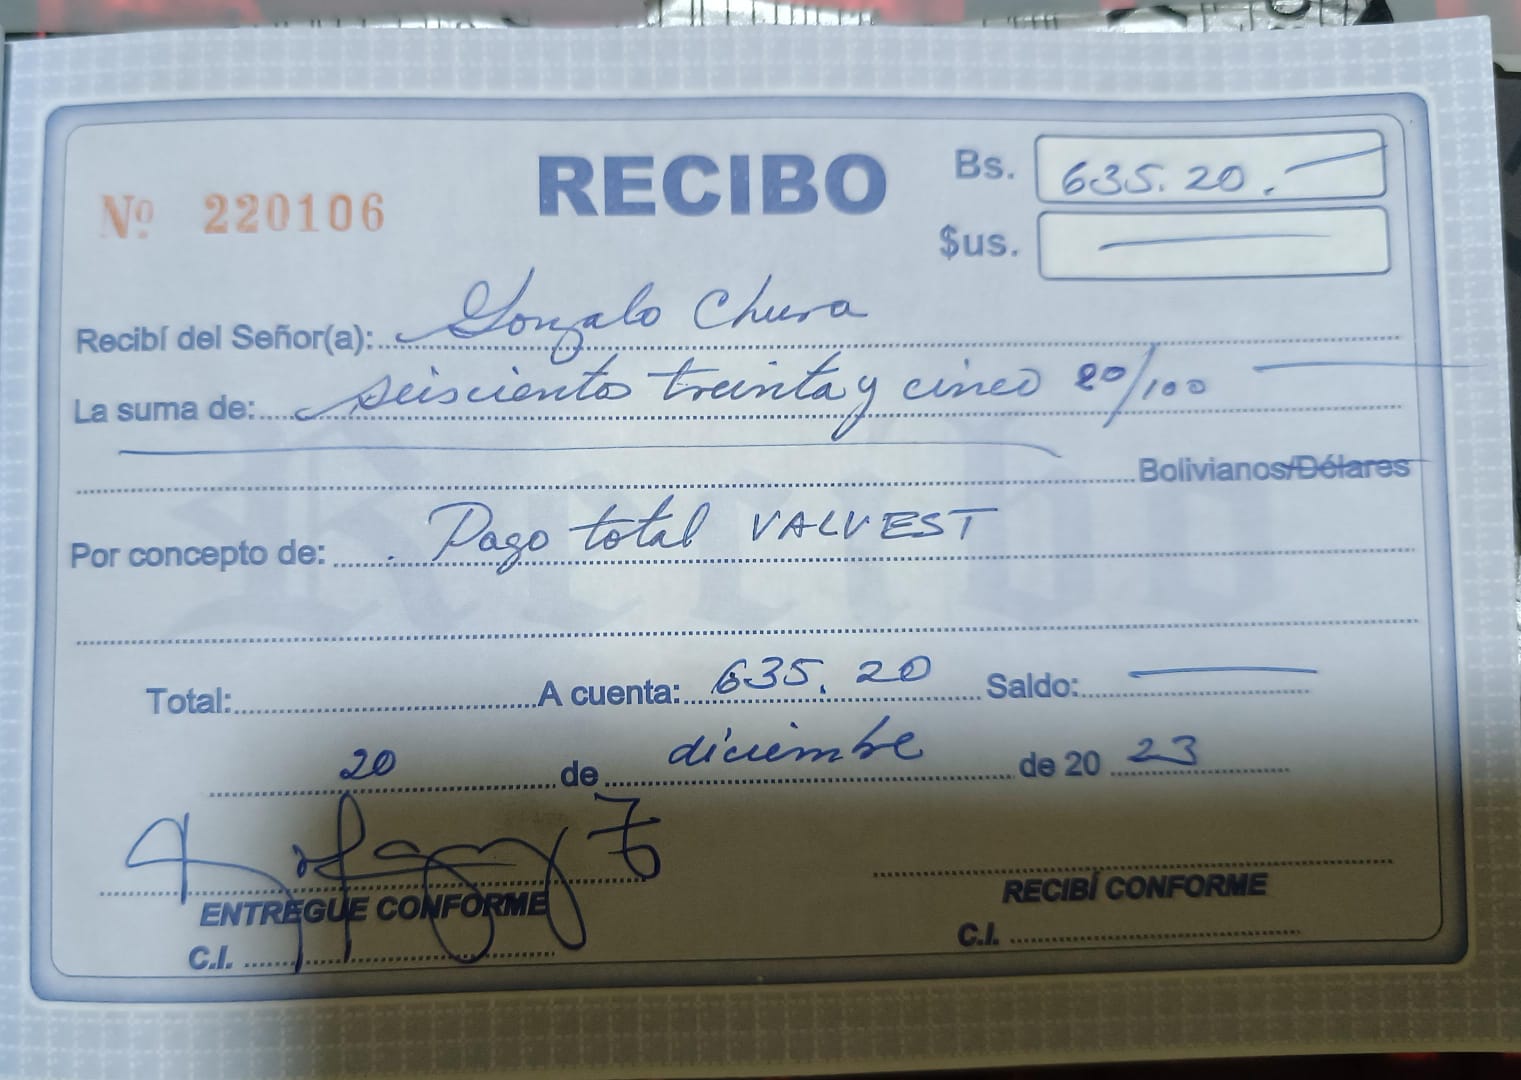 RECIBO
Nº 220106
Bs. 635.20.
$us.
Recibí del Señor(a): Gonzalo Chura
La suma de: seiscientos treinta y cinco 20/100
Bolivianos/Dólares
Por concepto de: Pago total VALVEST
Total: A cuenta: 635.20 Saldo:
20 de diciembre de 20 23
ENTREGUE CONFORME
C.I.
RECIBÍ CONFORME
C.I.
Recibo